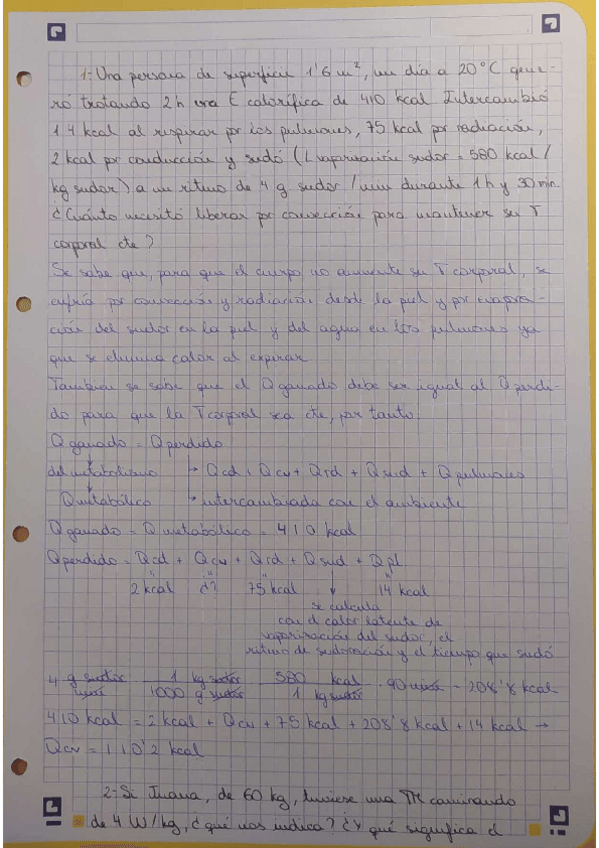 1- Una persona de superficie 1'6 m², un día a 20°C gene-
ró trotando 2h una E calorífica de 410 kcal. Intercambió
14 kcal al respirar por los pulmones, 75 kcal por radiación,
2 kcal por conducción y sudó (L vaporización sudor = 580 kcal/
kg sudor) a un ritmo de 4 g sudor/min durante 1h y 30 min.
¿Cuánto necesitó liberar por convección para mantener su T
corporal cte?
Se sabe que, para que el cuerpo no aumente su T corporal, se
enfría por convección y radiación desde la piel y por evapora-
ción del sudor en la piel y del agua en los pulmones ya
que se elimina calor al expirar.
También se sabe que el Q ganado debe ser igual al Q perdi-
do para que la T corporal sea cte, por tanto:
Q ganado = Q perdido
del metabolismo → Qcd + Qcv + Qrd + Qsud + Q pulmones
Q metabólico → intercambiada con el ambiente
Q ganado = Q metabólico = 410 kcal
Q perdido = Qcd + Qcv + Qrd + Qsud + Qpl
2 kcal ¿? 75 kcal ↓ 14 kcal
se calcula
con el calor latente de
vaporización del sudor, el
ritmo de sudoración y el tiempo que sudó
4 g sudor/min · 1 kg sudor/1000 g sudor · 580 kcal/1 kg sudor · 90 min = 208'8 kcal
410 kcal = 2 kcal + Qcv + 75 kcal + 208'8 kcal + 14 kcal →
Qcv = 110'2 kcal
2- Si Juana, de 60 kg, tuviese una TM caminando
de 4 W/kg, ¿qué nos indica? ¿Y qué significa el